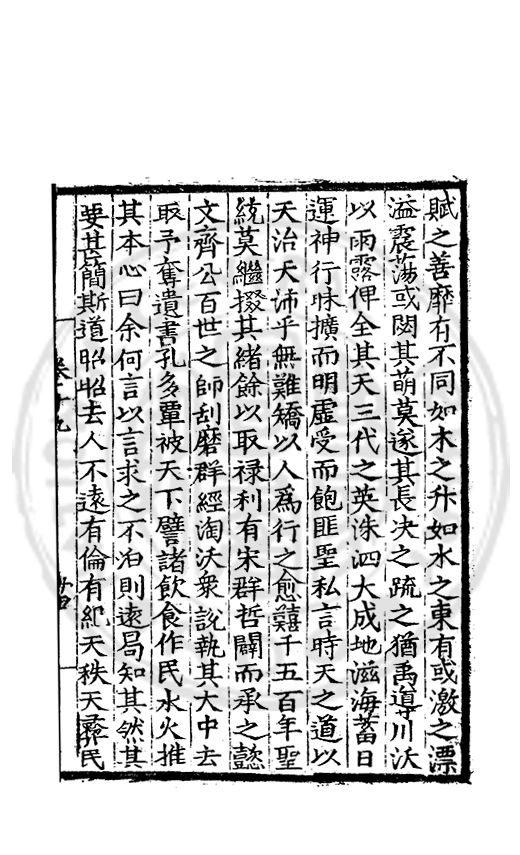 賦之善靡有不同如木之升如水之東有或激之漂
溢震蕩或閼其萌莫遂其長决之疏之猶禹導川沃
以雨露俾全其天三代之英洙泗大成地滋海蓄日
運神行昧擴而明虛受而飽匪聖私言時天之道以
天治天沛乎無難矯以人爲行之愈囏千五百年聖
統莫繼掇其緒餘以取禄利有宋群哲闢而承之懿
文齊公百世之師刮磨群經淘沃衆說執其大中去
取予奪遺書孔多覃被天下譬諸飲食作民水火推
其本心曰余何言以言求之不泊則遠局知其然其
要甚簡斯道昭昭去人不遠有倫有紀天秩天彝民
卷二十九